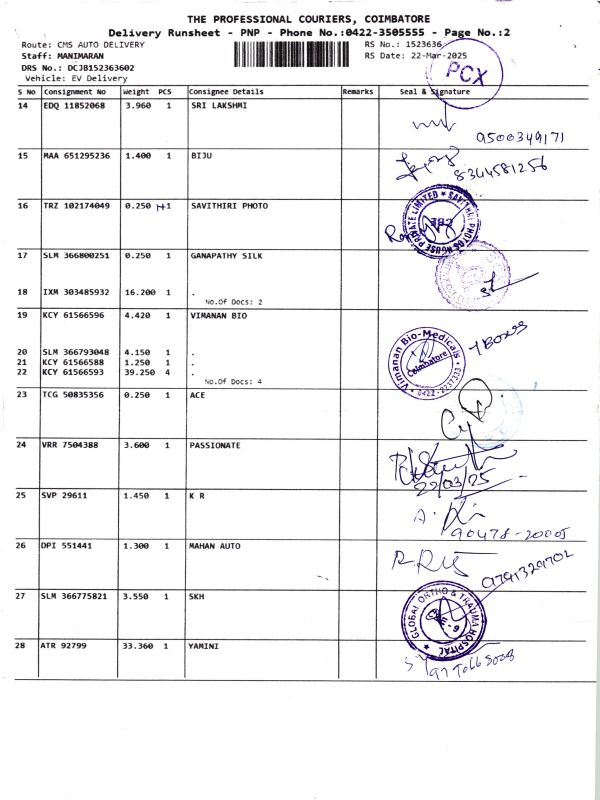 THE PROFESSIONAL COURIERS, COIMBATORE
Delivery Runsheet - PNP - Phone No.:0422-3505555 - Page No.:2
Route: CMS AUTO DELIVERY RS No.: 1523636
Staff: MANIMARAN RS Date: 22-Mar-2025
DRS No.: DCJB152363602
Vehicle: EV Delivery
PCX
S No Consignment No Weight PCS Consignee Details Remarks Seal & Signature
14 EDQ 11852068 3.960 1 SRI LAKSHMI
9500349171
15 MAA 651295236 1.400 1 BIJU
8344581256
16 TRZ 102174049 0.250 1 SAVITHIRI PHOTO
SAVITHRI PHOTO HOUSE PRIVATE LIMITED
CBE
17 SLM 366800251 0.250 1 GANAPATHY SILK
18 IXM 303485932 16.200 1 .
No.Of Docs: 2
19 KCY 61566596 4.420 1 VIMANAN BIO
Vimanan Bio-Medicals
Coimbatore
7 Boxes
20 SLM 366793048 4.150 1 .
21 KCY 61566588 1.250 1 .
22 KCY 61566593 39.250 4 .
No.Of Docs: 4
23 TCG 50835356 0.250 1 ACE
24 VRR 7504388 3.600 1 PASSIONATE
22/03/25
25 SVP 29611 1.450 1 K R
90478-20005
26 DPI 551441 1.300 1 MAHAN AUTO
9791329702
27 SLM 366775821 3.550 1 SKH
GLOBAL ORTHO & TRAUMA HOSPITAL
28 ATR 92799 33.360 1 YAMINI